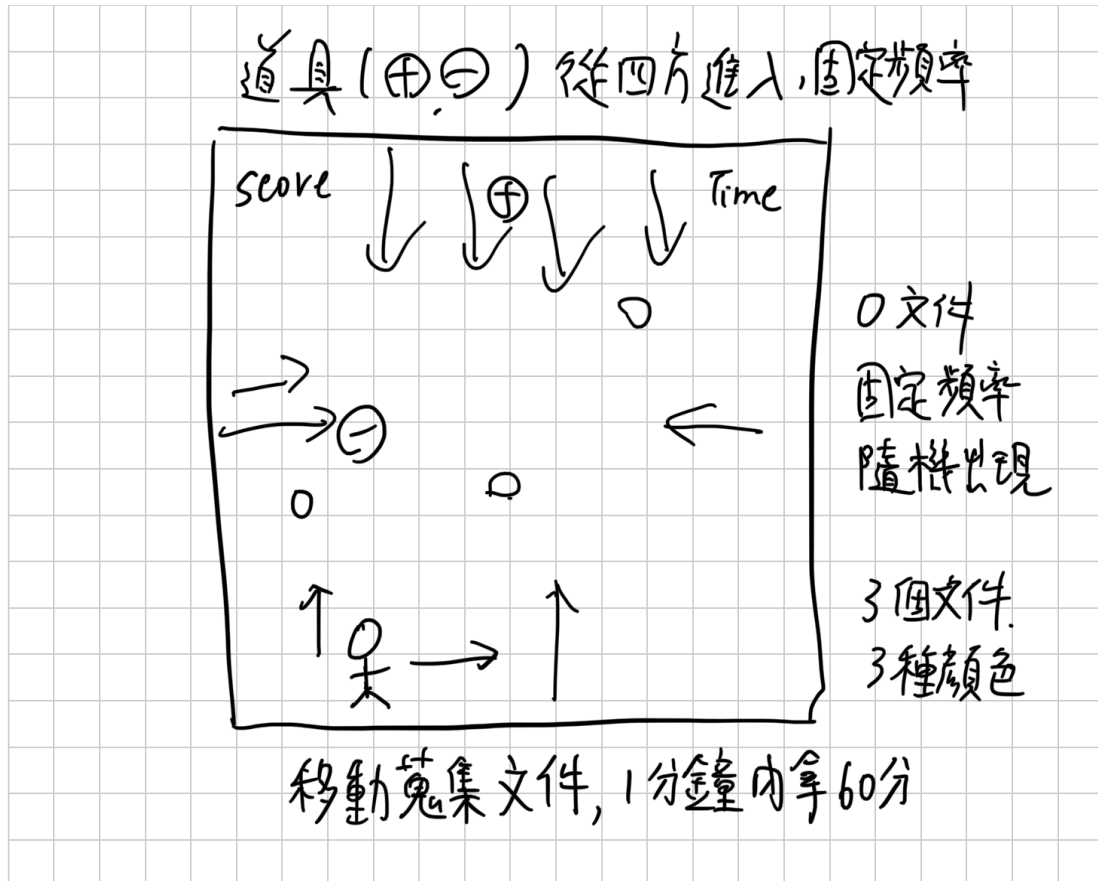 道具(⊕,⊖)從四方進入,固定頻率
score
Time
0 文件
固定頻率
隨機出現
3個文件.
3種顏色
移動蒐集文件,1分鐘內拿60分